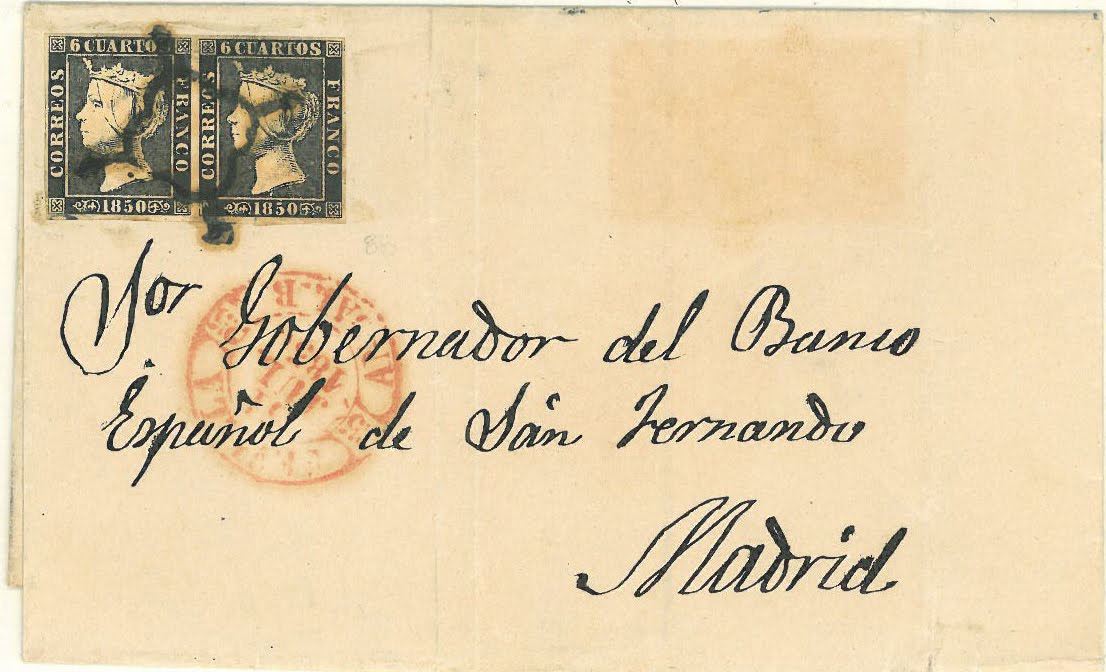 6 CUARTOS 6 CUARTOS
CORREOS FRANCO CORREOS FRANCO
1850 1850
88
Sor Gobernador del Banco
Español de San Fernando
Madrid